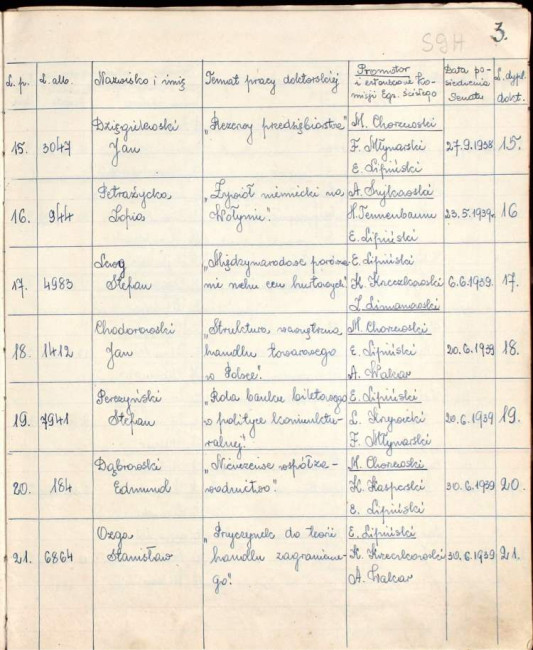 SGH 3.
L. p. L. alb. Nazwisko i imię Temat pracy doktorskiej Promotor i członkowie Komisji Egz. ścisłego Data posiedzenia Senatu L. dypl. dokt.
15. 3047 Dzięgielewski „Rezerwy przedsiębiorstw" M. Chorzewski
Jan F. Młynarski 27.9.1938 15.
E. Lipiński
Petrażycka „Żywioł niemiecki na A. Sujkowski
16. 944 Zofia Wołyniu". H. Tennenbaum 23.5.1939. 16
E. Lipiński
„Międzynarodowe porówna- E. Lipiński
17. 4983 Stefan nie ruchu cen hurtowych" K. Krzeczkowski 6.6.1939. 17.
J. Limanowski
Chodorowski „Struktura wewnętrzna M. Chorzewski
18. 1412 Jan handlu towarowego E. Lipiński 20.6.1939 18.
w Polsce". A. Wakar
Perczyński „Rola banku biletowego E. Lipiński
19. 7941 Stefan w polityce koniunktu- L. Krzywicki 20.6.1939 19.
ralnej". F. Młynarski
Dąbrowski „Nieuczciwe współza- M. Chorzewski
20. 184 Edmund wodnictwo". K. Kasperski 30.6.1939 20.
E. Lipiński
Ozga „Przyczynek do teorii E. Lipiński
21. 6864 Stanisław handlu zagranicznego". K. Krzeczkowski 30.6.1939 21.
A. Wakar